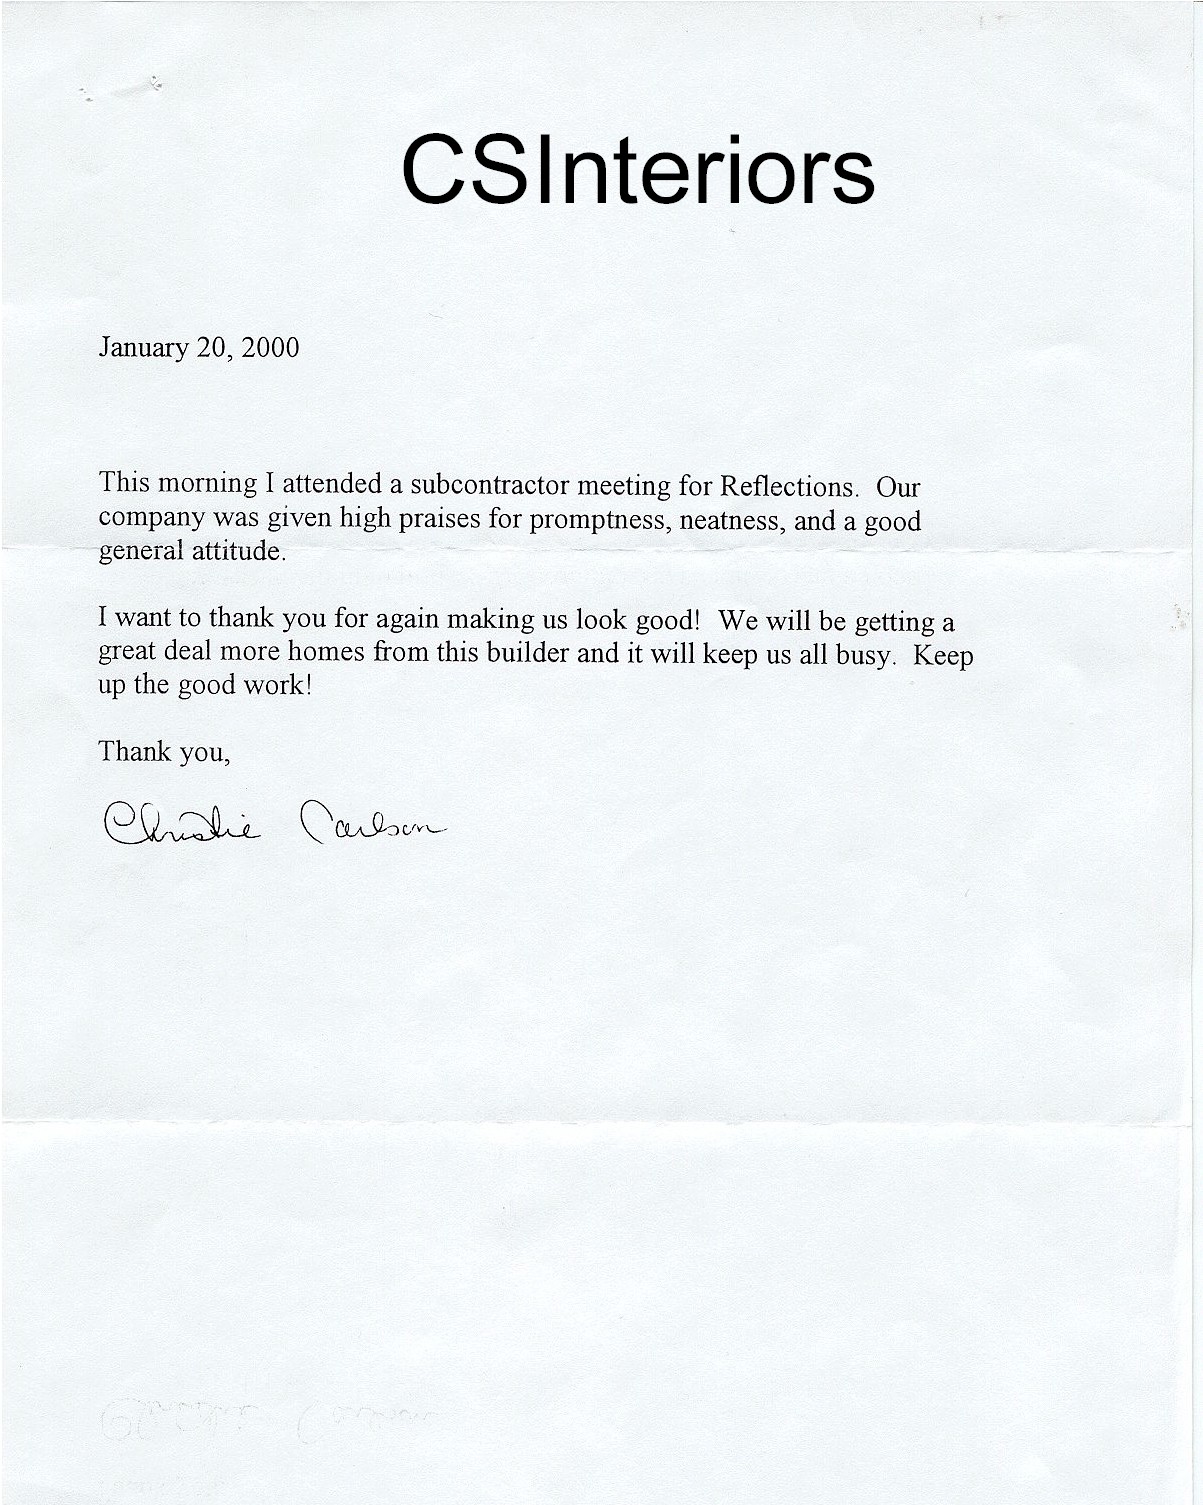 CSInteriors
January 20, 2000
This morning I attended a subcontractor meeting for Reflections. Our
company was given high praises for promptness, neatness, and a good
general attitude.
I want to thank you for again making us look good! We will be getting a
great deal more homes from this builder and it will keep us all busy. Keep
up the good work!
Thank you,
Christie Carlson